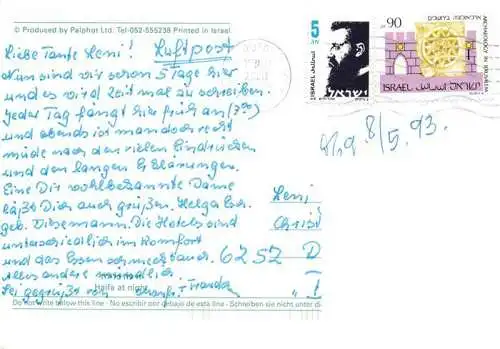 © Produced by Palphot Ltd. Tel-052-555238 Printed in Israel
Liebe Tante Leni! Luftpost
Nun sind wir schon 5 Tage hier
und es wird Zeit mal zu schreiben.
Jeder Tag fängt hier früh an (7°°)
und abends ist man doch recht
müde nach den vielen Eindrücken
und den langen Erklärungen.
Eine Dir wohlbekannte Dame
läßt Dich auch grüßen. Helga
geb. Die Hotels sind
unterschiedlich im Komfort
und das Essen schmeckt auch.
alles andere mündlich.
Sei gegrüßt von Trauda
Haifa at night
Do not write below this line - No escribir por debajo de esta line - Schreiben sie nicht unter di
5
ISRAEL
ישראל
90
ארכיאולוגיה בירושלים
ARCHAEOLOGY IN JERUSALEM
ISRAEL اسرائيل ישראל
8/5.93.
Leni
6252 D